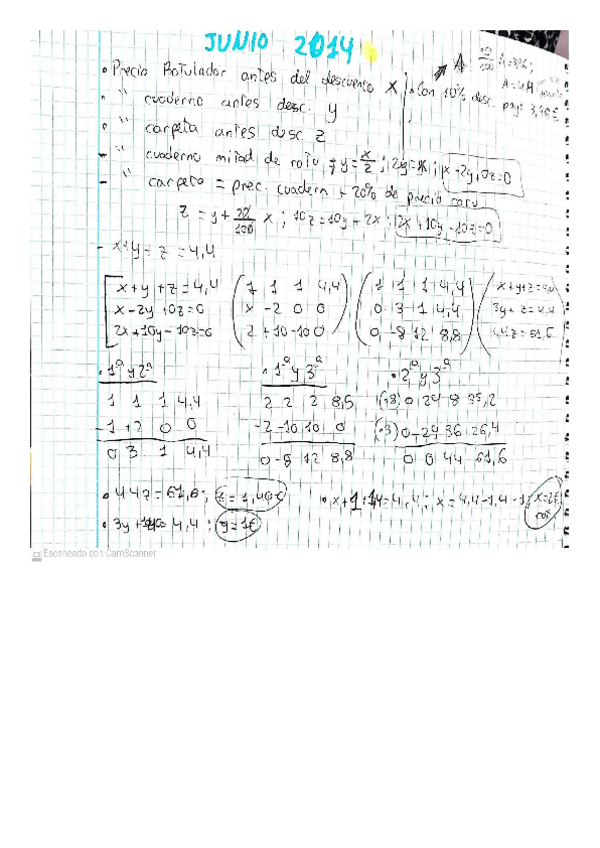 JUNIO 2014
• Precio Rotulador antes del descuento x
• " cuaderno antes desc. y
• " carpeta antes desc. z
• Con 10% desc. pago 3,96€
- " cuaderno mitad de rotu → y = x/2 ; 2y = x ; x - 2y + 0z = 0
- " carpeta = prec. cuadern + 20% de precio rotu
z = y + 20/100 x ; 10z = 10y + 2x ; 2x + 10y - 10z = 0
- x + y = z = 4,4
x + y + z = 4,4 ( 1 1 1 4,4 ) ( 1 1 1 4,4 ) ( x + y + z = 4,4
x - 2y + 0z = 0 x -2 0 0 0 3 1 4,4 3y + z = 4,4
2x + 10y - 10z = 0 2 + 10 -10 0 0 -8 12 8,8 44z = 61,6
• 1ª y 2ª • 1ª y 3ª • 2ª y 3ª
1 1 1 4,4 2 2 2 8,8 (·8) 0 24 8 35,2
- 1 + 2 0 0 -2 -10 10 0 (·3) 0 -24 36 26,4
0 3 1 4,4 0 -8 12 8,8 0 0 44 61,6
• 44z = 61,6 ; z = 1,40€ • x + 1 + 1,4 = 4,4 ; x = 4,4 - 1,4 - 1 ; x = 2€
• 3y + 1,40 = 4,4 ; y = 1€
CS Escaneado con CamScanner